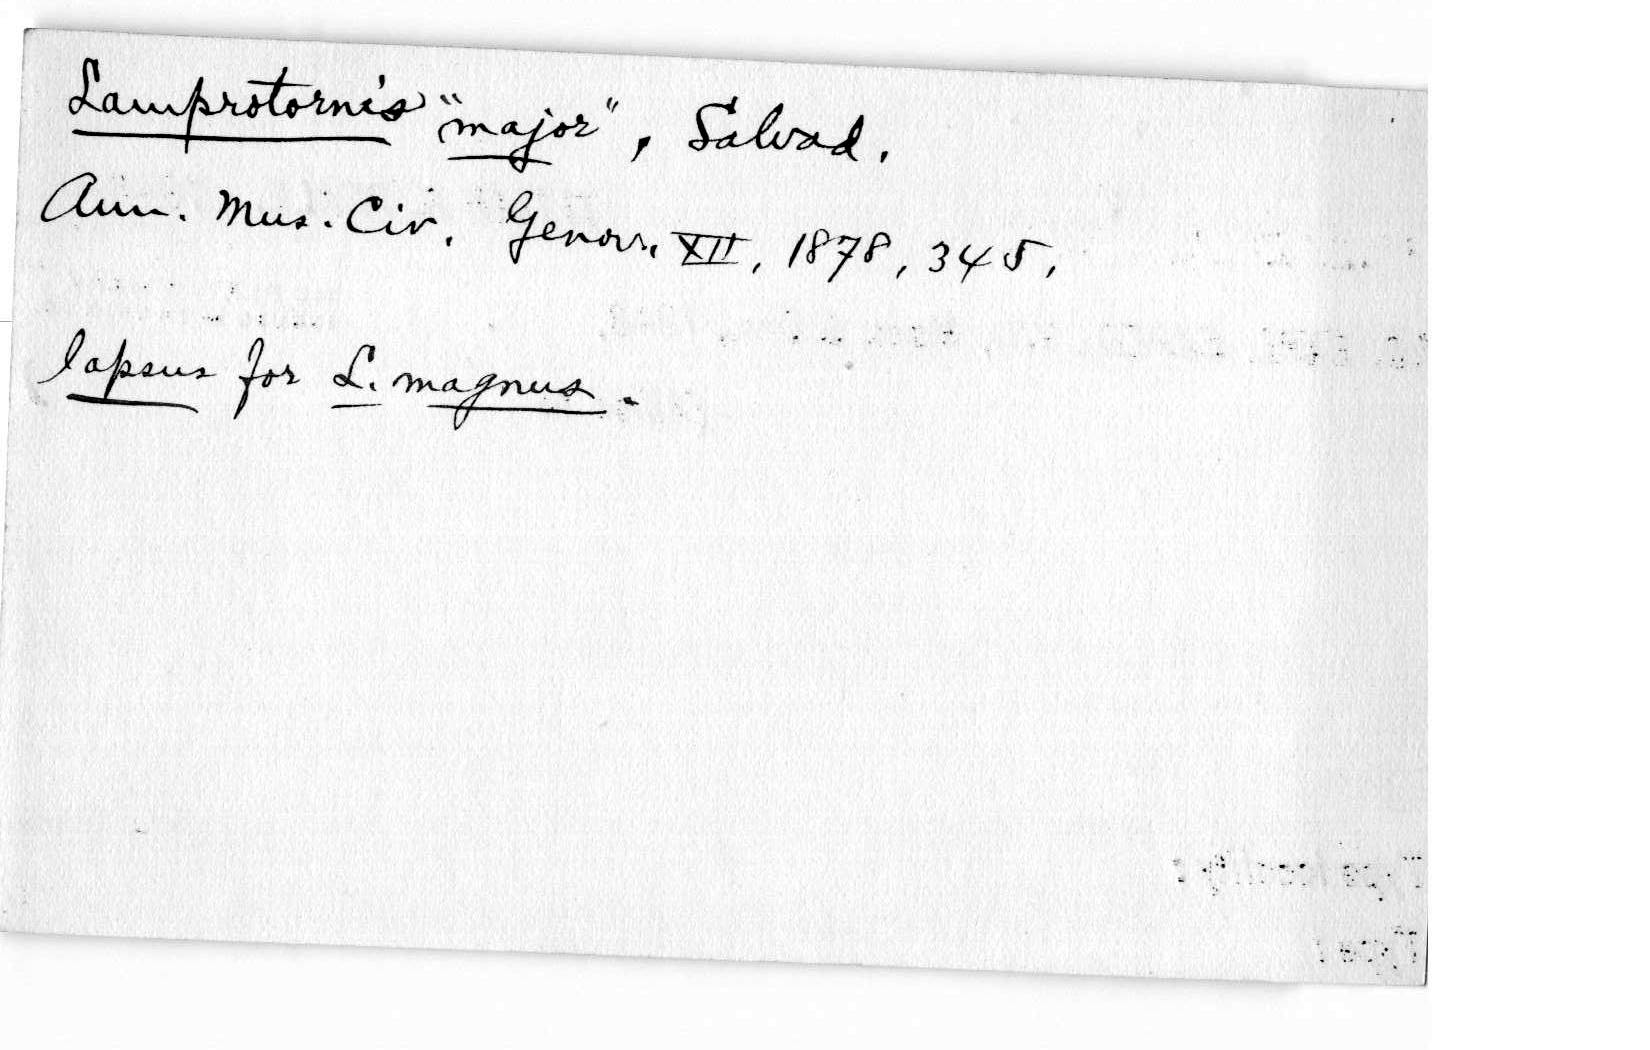 Lamprotornis "major", Salvad.
Ann. Mus. Civ. Genov. XII, 1878, 345.
lapsus for L. magnus.